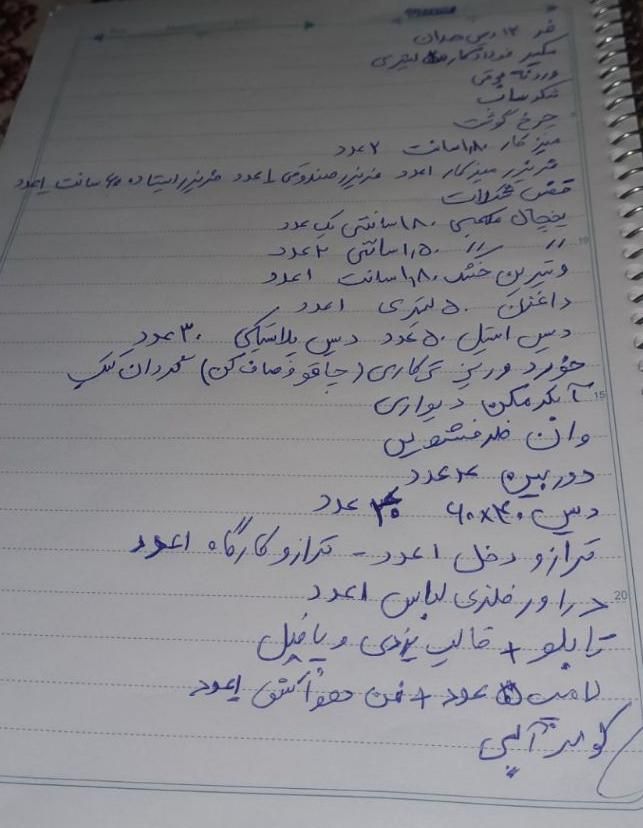 فر ۱۲ دیس همدان
میکسر فولادکار لیتری
وردنه برقی
شکر ساب
چرخ گوشت
میز کار ۱٫۸۰ سانت ۲ عدد
فریزر میز کار ۱ عدد فریزر صندوقی ۱ عدد فریزر ایستاده ۶۰ سانت ۱ عدد
قفس شکلات
یخچال مکعبی ۱٫۸۰ سانتی یک عدد
〃 〃 ۱٫۵۰ سانتی ۲ عدد
ویترین خشک ۱٫۸۰ سانت ۱ عدد
داغکن ۵۰ لیتری ۱ عدد
دیس استیل ۵۰ عدد دیس پلاستیکی ۳۰ عدد
خورد و ریز کاری (چاقو و صاف کن) گردان کیک
آبگرمکن دیواری
وان ظرفشویی
دوربین ۴ عدد
دیس ۴۰×۶۰ عدد
ترازو دخل ۱ عدد - ترازو کارگاه ۱ عدد
دراور فلزی لباس ۱ عدد
تابلو + قالب یزدی و پافیل
لامپ عدد + فن هواکش ۱ عدد
کولر آبی